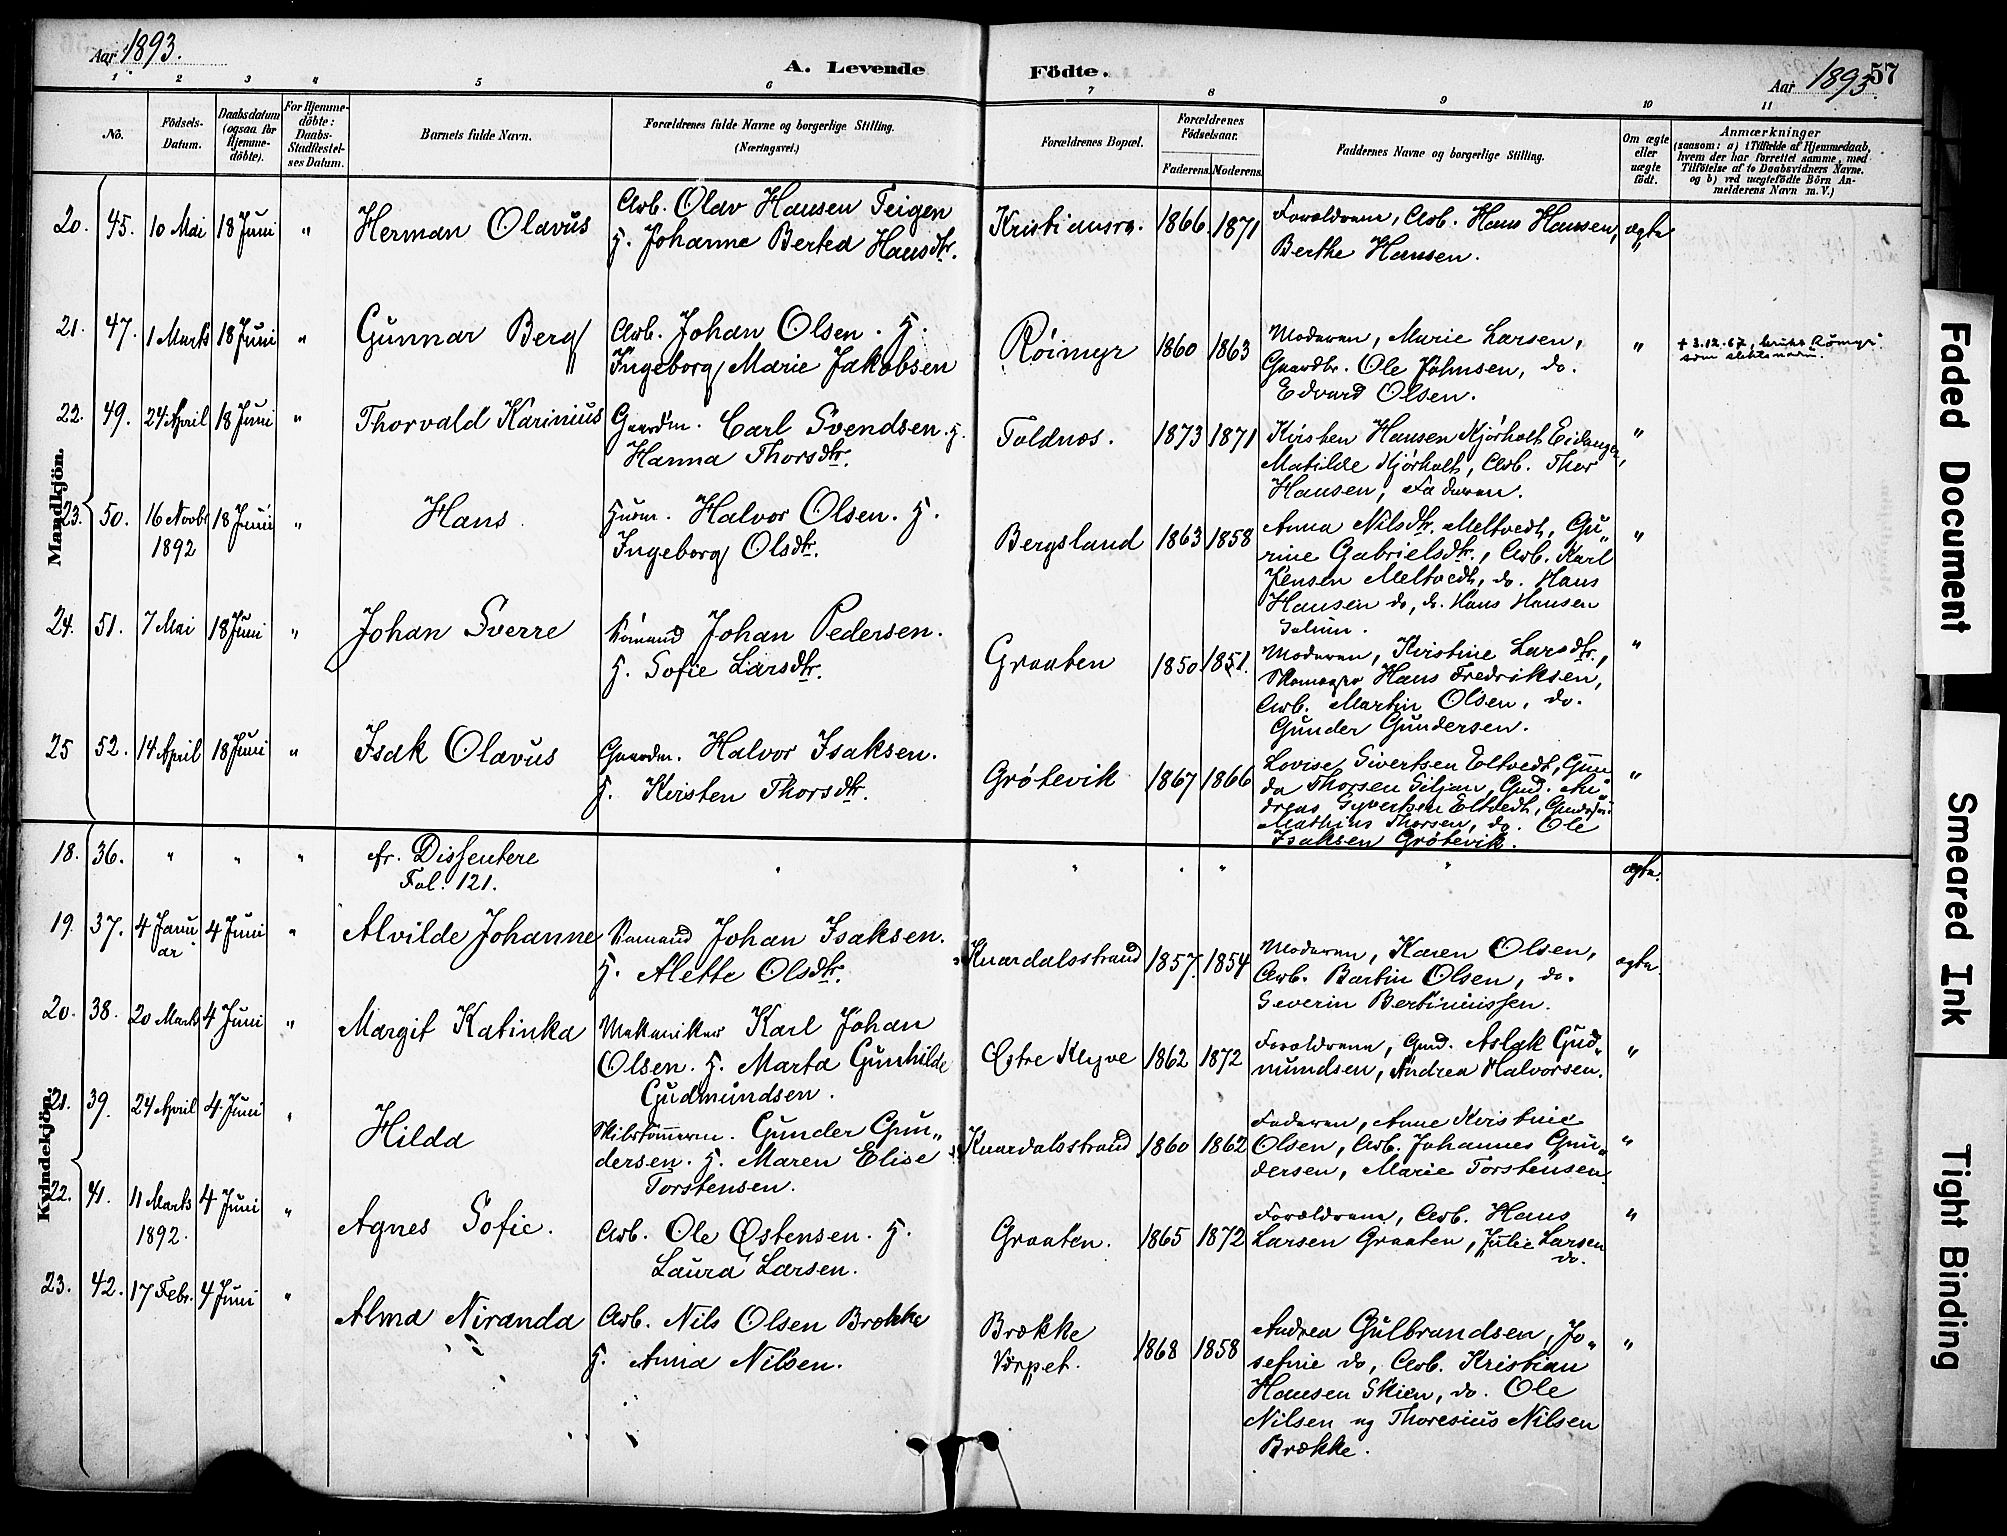 Aar 1893.
A. Levende Födte.
Aar 1893. 57
1 2 3 4 5 6 7 8 9 10 11
No.
Födsels-Datum.
Daabsdatum (ogsaa for Hjemme-döbte).
For Hjemme-döbte: Daabs-Stadfæstel-ses Datum.
Barnets fulde Navn.
Forældrenes fulde Navne og borgerlige Stilling.
(Næringsvei.)
Forældrenes Bopæl.
Forældrenes Födselsaar.
Faderens. Moderens.
Faddernes Navne og borgerlige Stilling.
Om ægte eller uægte födt.
Anmærkninger
(saasom: a) i Tilfælde af Hjemmedaab, hvem der har forrettet samme, med Tilföielse af to Daabsvidners Navne, og b) ved uægtefödte Börn An-melderens Navn m. V.)
Mandkjön.
20. 45. 10 Mai 18 Juni " Herman Olavus Arb. Olav Hansen Teigen Kristiansrø. 1866. 1871 Forældrene, Arb. Hans Hansen, ægte
H. Johanne Bertea Hansdtr. Berthe Hansen. "
21. 47. 1 Marts 18 Juni " Gunnar Berg Arb. Johan Olsen. H. Röimyr 1860 1863 Moderen, Marie Larsen, " + 3.12.67, brukt Römyr
Ingeborg Marie Jakobsen Gaardbr. Ole Johnsen, do. som slektsnavn.
Edvard Olsen.
22. 49. 24 April 18 Juni " Thorvald Karinius Gaardm. Carl Svendsen. H. Toldnes. 1873 1871 Kirsten Hansen Kjørholt Eidanger, "
Hanna Thorsdtr. Matilde Kjørholt, Arb. Thor
Hansen, Faderen.
23. 50. 16 Novbr 18 Juni " Hans Husm. Halvor Olsen. H. Bergsland 1863 1858 Anna Nilsdtr. Meltvedt, Gu„ "
1892 Ingeborg Olsdtr. rine Gabrielsdtr., Arb. Karl
Jensen Meltvedt, do. Hans
Hansen do, do. Hans Hansen
Solum.
24. 51. 7 Mai 18 Juni " Johan Sverre Sömand Johan Pedersen. Graaten 1850 1851. Moderen, Kristine Larsdtr., "
H. Sofie Larsdtr. Hans Fredriksen,
Arb. Martin Olsen, do.
Gunder Gundersen.
25 52. 14 April 18 Juni " Isak Olavus Gaardm. Halvor Isaksen. Grøtevik 1867 1866 Lovise Sivertsen Eltvedt, Gun„ "
H. Kirsten Thorsdtr. da Thorsen Siljan, Gmd. An„
dreas Syvertsen Eltvedt,
Mathias Thorsen, do. Ole
Isaksen Grøtevik.
Kvindekjön.
18. 36. " " " fr. Dissentere " " " " " ægte.
Fol. 121.
19. 37. 4 Janu 4 Juni " Alvilde Johanne Sömand Johan Isaksen. Knardalsstrand 1857. 1854 Moderen, Karen Olsen, ægte
ar H. Alette Olsdtr. Arb. Bartin Olsen, do.
Severin Bertiniussen.
20. 38. 20 Marts 4 Juni " Margit Katinka Mekaniker Karl Johan Østre Klyve 1862 1872 Forældrene, Gmd. Aslak Gud„ "
Olsen. H. Marta Gunhilde mundsen, Andrea Halvorsen.
Gudmundsen.
21. 39. 24 April 4 Juni " Hilda Skibstömmerm. Gunder Gun„ Knardalsstrand 1860 1862 Faderen, Anne Kristine "
dersen. H. Maren Elise Olsen, Arb. Johannes Gun„
Torstensen. dersen, Marie Torstensen
22. 41. 11 Marts 4 Juni " Agnes Sofie. Arb. Ole Østensen. H. Graaten. 1865 1872 Forældrene, Arb. Hans "
1892. Laura Larsen. Larsen Graaten, Julie Larsen
do.
23. 42. 17 Febr. 4 Juni " Alma Niranda Arb. Nils Olsen Brække Brække 1868 1858 Andrea Gulbrandsen, Jo„ "
H. Anna Nilsen. Værpet. sefine do, Arb. Kristian
Hansen Skien, do. Ole
Nilsen og Thoresius Nilsen
Brække.
Faded Document
Smeared Ink
Tight Binding